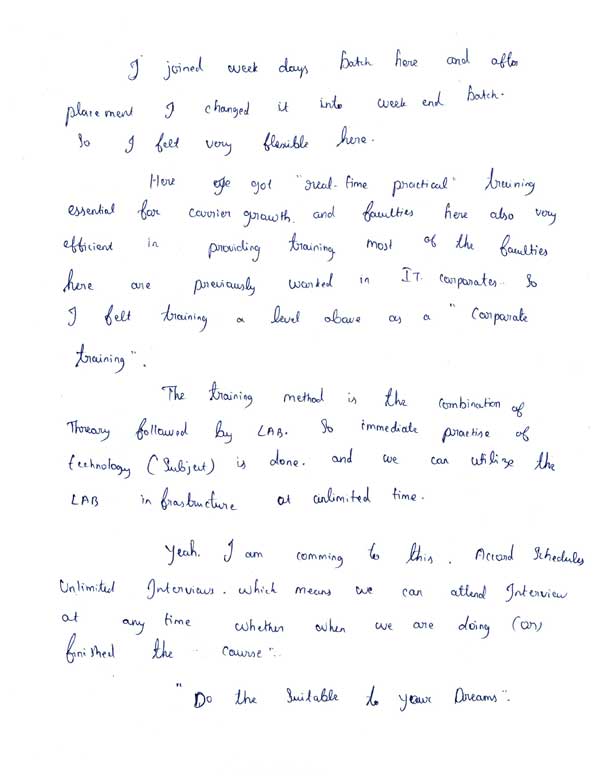 I joined week days batch here and after
placement I changed it into week end batch.
So I felt very flexible here.
Here we got "real-time practical" training
essential for carrier growth. and faculties here also very
efficient in providing training most of the faculties
here are previously worked in IT. corporates. So
I felt training a level above as a "Corporate
training".
The training method is the combination of
Threary followed by LAB. So immediate practise of
technology (Subject) is done. and we can utilize the
LAB infrastructure at unlimited time.
Yeah. I am comming to this. Accord Schedules
Unlimited Interviews. which means we can attend Interview
at any time whether when we are doing (or)
finished the course".
"Do the Suitable to your Dreams".